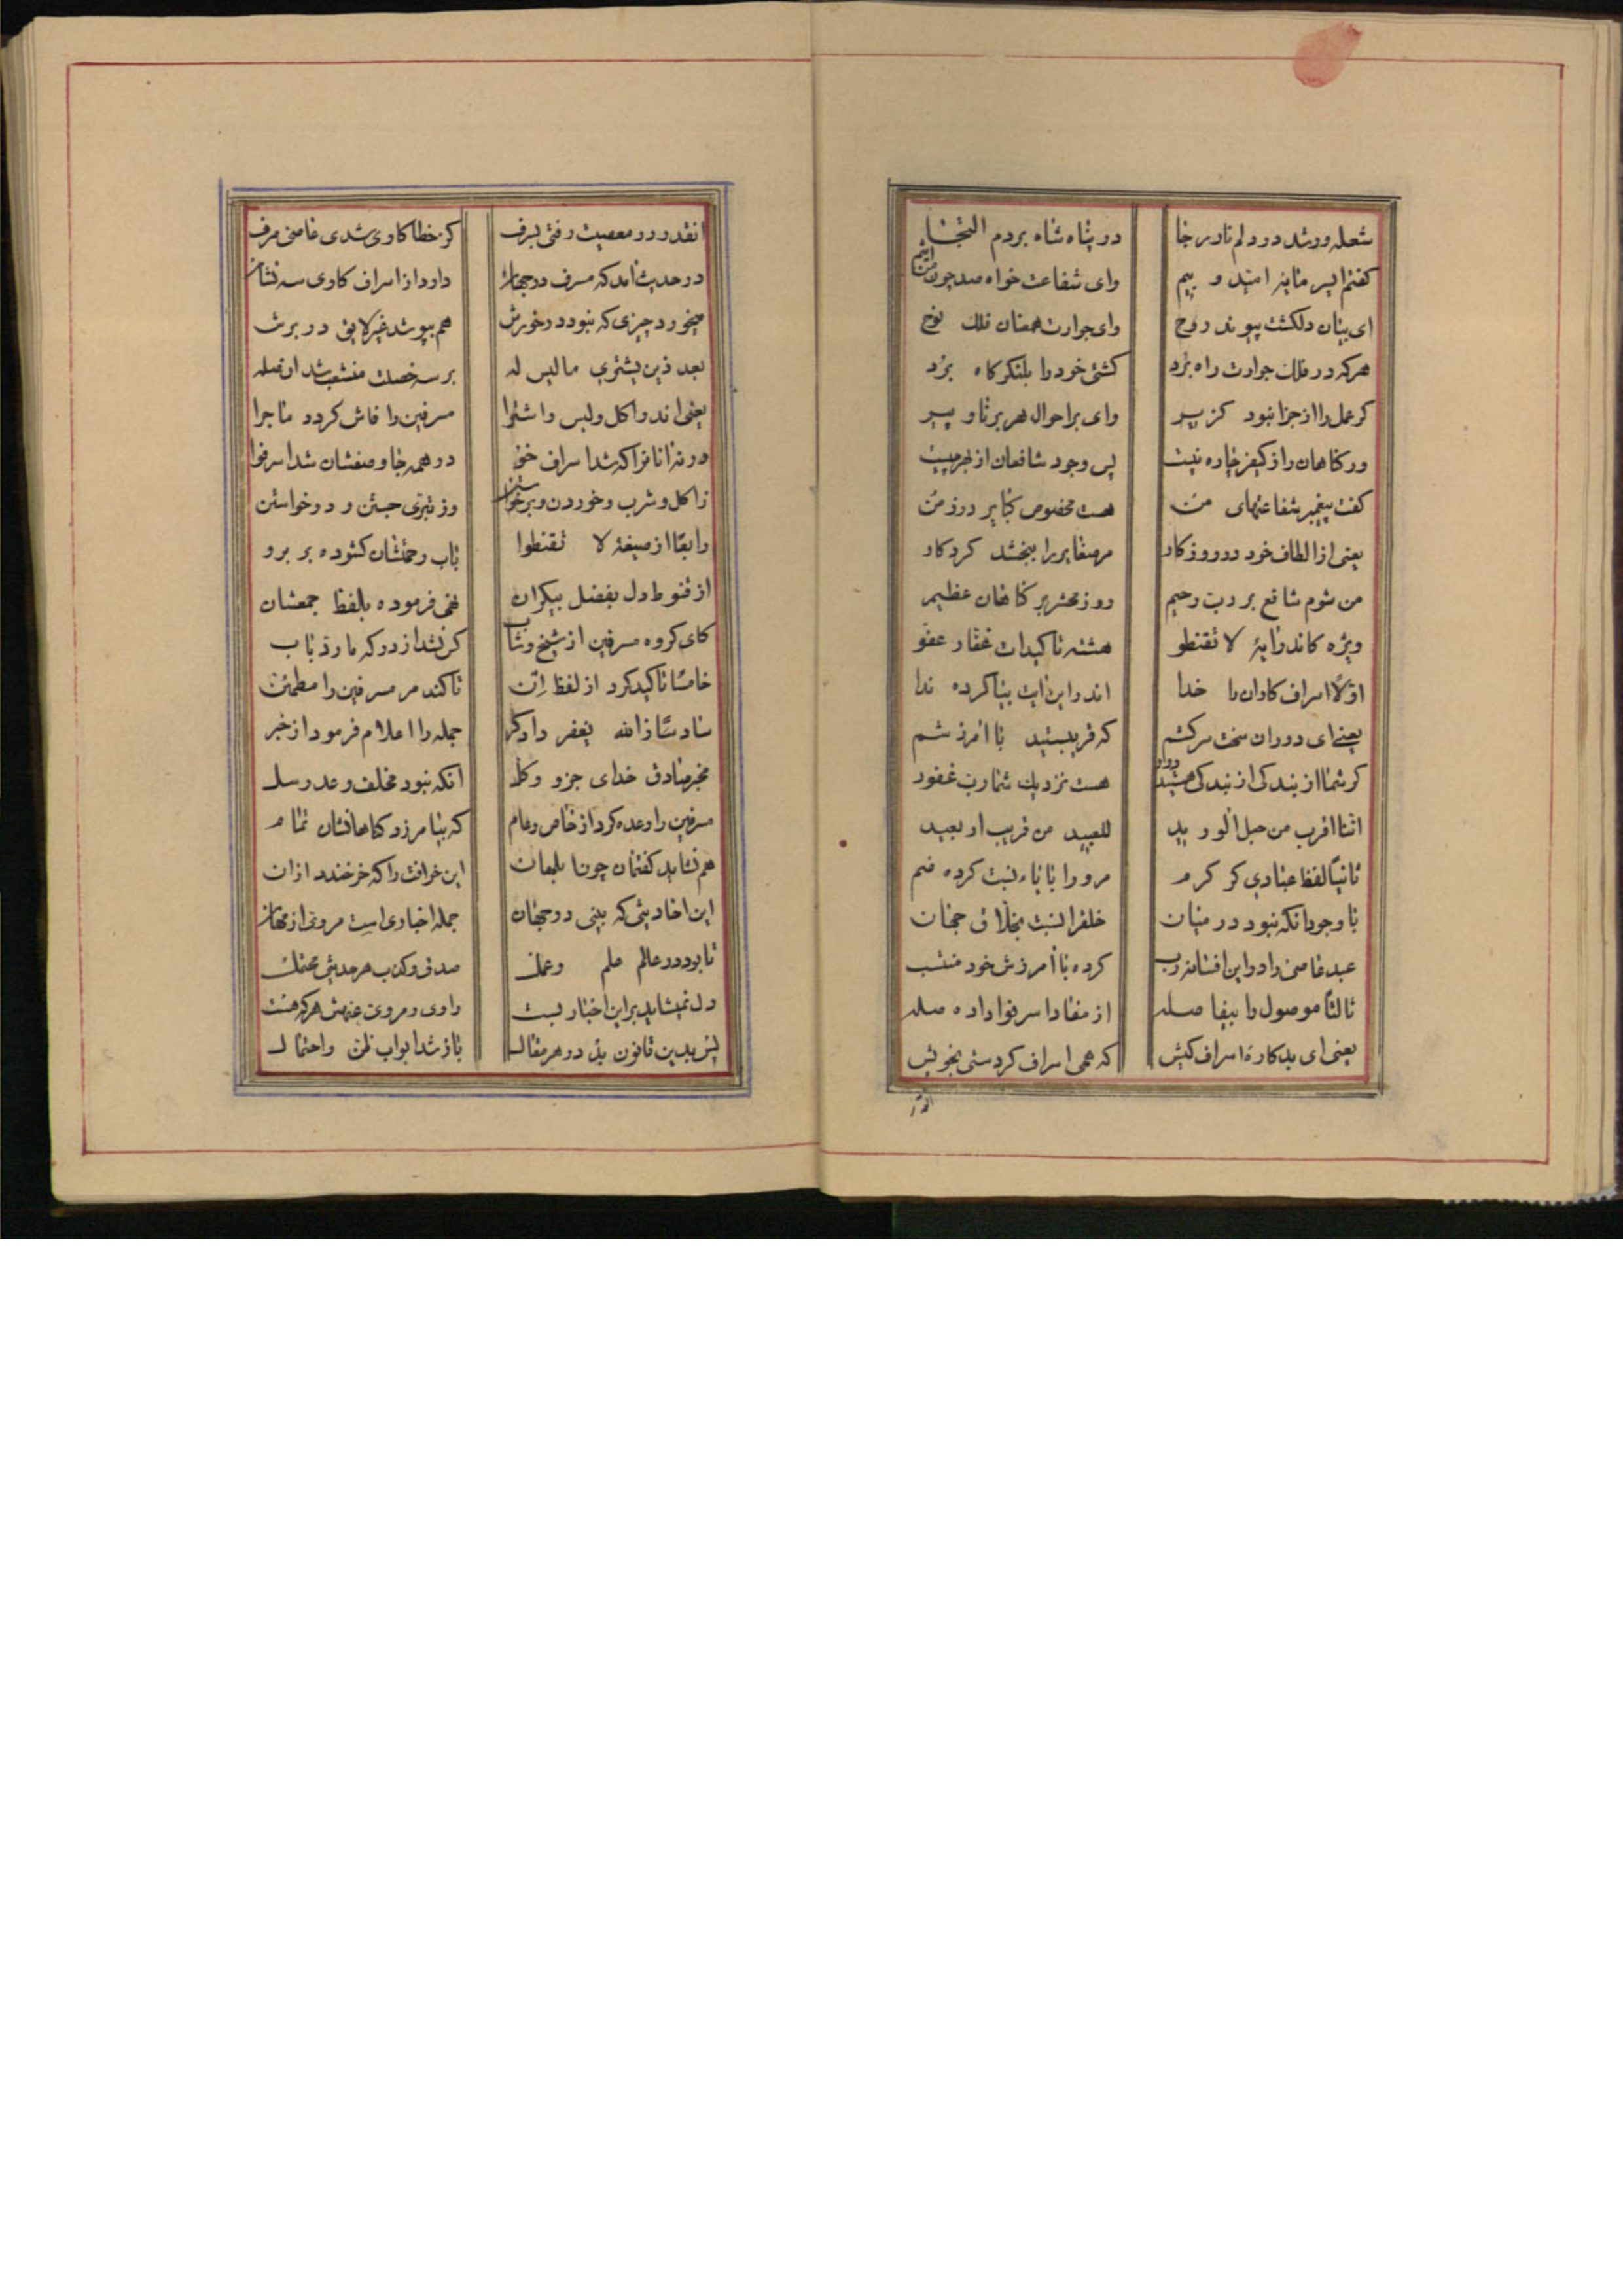 شعله ور شد در دلم نار رجا در پناه شاه بردم التجا
گفتم ایسرمایه امید و بیم وای شفاعت خواه صد چون من اثیم
ای بیان دلکشت پیوند روح وای جوارت همعنان فلک نوح
هرکه در فلک جوارت راه برد کشتی خود را بلنگرگاه برد
گر عمل را از جزا نبود گزیر وای بر احوال هر برنا و پیر
ور گناهان را ز کیفر چاره نیست پس وجود شافعان از بهر چیست
گفت پیغمبر شفاعتهای من هست مخصوص کبایر در زمن
یعنی از الطاف خود در روز کار مر صغایر را ببخشد کردکار
من شوم شافع بر رب رحیم روز محشر بر گناهان عظیم
ویژه کاندر آیهٔ لا تقنطو هشته تاکیدات غفار عفو
اولا اسراف کاران را خدا اندر این آیت بیا کرده ندا
یعنی ای دوران سخت سرکشم که قریبستید با آمرزشم
گر شما از بندگی از بندگی هستید دور هست نزدیک شما رب غفور
اننا اقرب من حبل الورید للعبید من قریب او بعید
ثانیا لفظ عبادی کز کرم مر ورا با یاء نسبت کرده ضم
با وجود آنکه نبود در میان خلق را نسبت بخلاق جهان
عبد عاصی را در این افسانه رب کرده با آمرزش خود منتسب
ثالثا موصول را بیفاصله از مفاد اسرفوا داده صله
یعنی ای بدکارهٔ اسراف کیش که همی اسراف کردستی بخویش
انقدر در معصیت رفتی بسرف کز خطاکاری شدی عاصی مرف
در حدیث آمد که مسرف در جهان دارد از اسراف کاری سه نشان
میخورد چیزی که نبود در خورش هم بپوشد غیر لایق در برش
بعد ذین یشتری ما لیس له بر سه خصلت منشعب شد
یعنی اندر اکل و لبس و اشترا مسرفین را فاش گردد ماجرا
در همه جا وصفشان شد اسرفوا
ز اکل و شرب و خوردن و برخواستن وز تبری جستن و درخواستن
رابعا از صیغهٔ لا تقنطوا باب رحمتشان کشوده بر برو
از قنوط دل بفضل بیکران نهی فرموده بلفظ جمعشان
کای گروه مسرفین از شیخ و شاب کس نشد از درگه ما رد باب
خامسا تاکید کرد از لفظ ان تا کند مر مسرفین را مطمئن
سادسا ز الله یغفر دادگر جمله را اعلام فرمود از خبر
مخبر صادق خدای جزو و کل آنکه نبود مخلف وعد رسل
مسرفین را وعده کرد از خاص و عام که بیامرزد گناهانشان تمام
هم نشاید گفتمان چون ابلهان این خرافت را که خر خندد از آن
این احادیثی که بینی در جهان جمله اخباری است مروی از مهان
تا بود در عالم علم و عمل صدق و کذب هر حدیثی محتمل
دل نمیشاید بر این اخبار بست راوی و مروی عنهش هرکه هست
پس بدین قانون بد در هر مقال باز شد ابواب ظن و احتمال